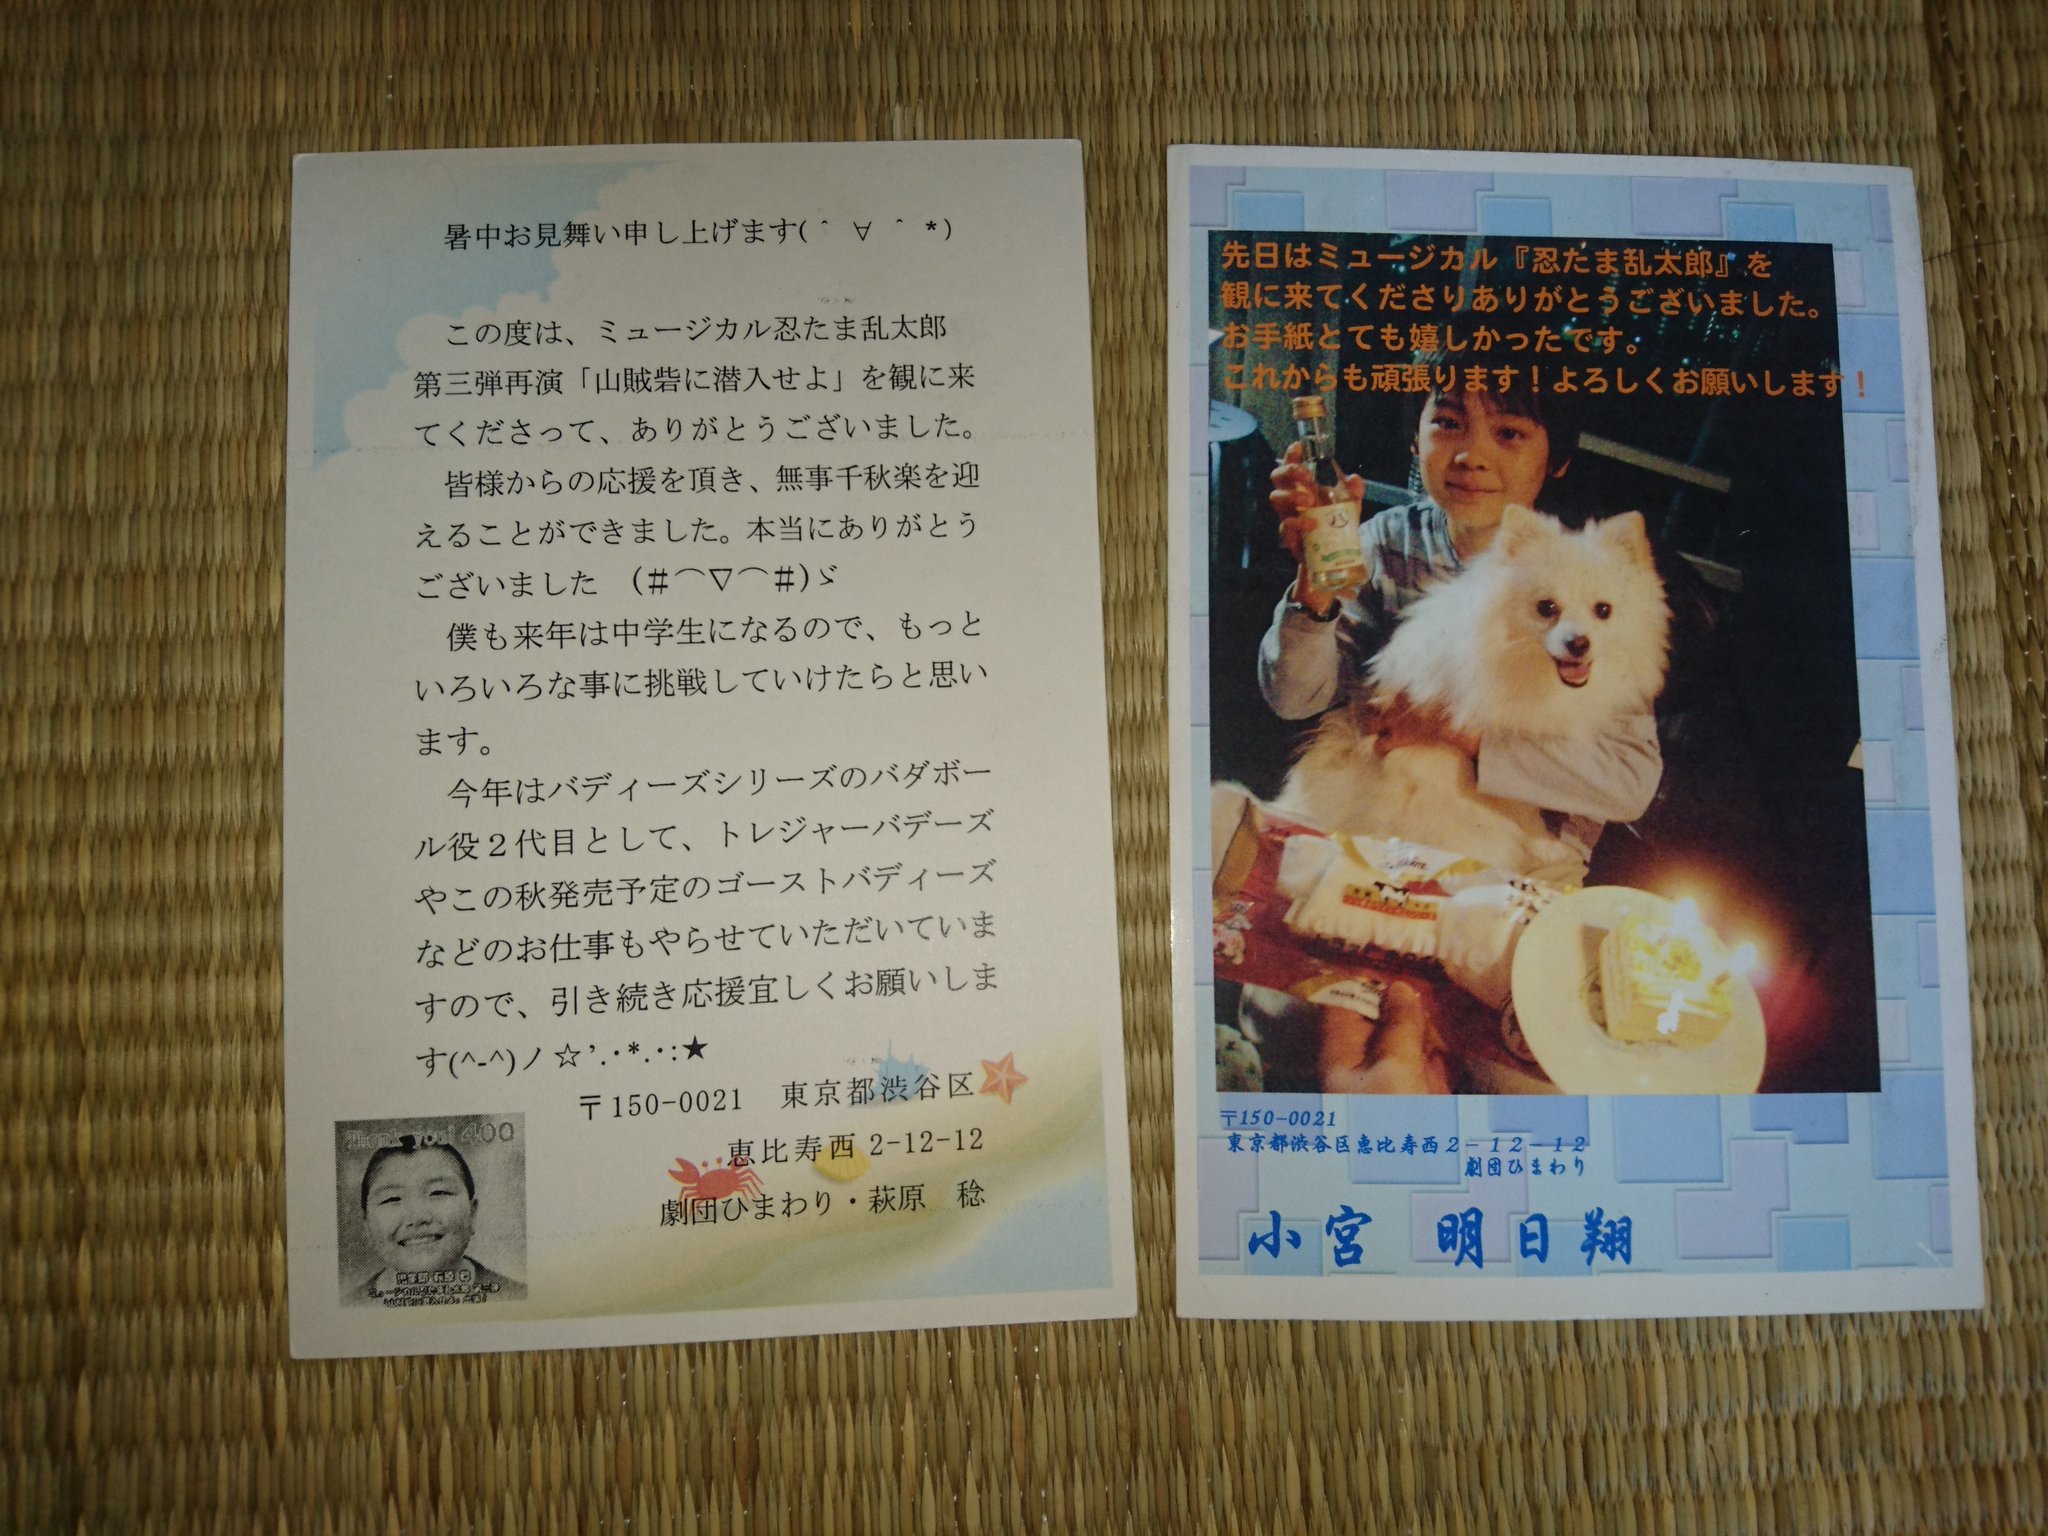 暑中お見舞い申し上げます(＾∀＾*)
この度は、ミュージカル忍たま乱太郎
第三弾再演「山賊砦に潜入せよ」を観に来
てくださって、ありがとうございました。
皆様からの応援を頂き、無事千秋楽を迎
えることができました。本当にありがとう
ございました　(＃⌒▽⌒＃)ゞ
僕も来年は中学生になるので、もっと
いろいろな事に挑戦していけたらと思い
ます。
今年はバディーズシリーズのバダボー
ル役２代目として、トレジャーバデーズ
やこの秋発売予定のゴーストバディーズ
などのお仕事もやらせていただいていま
すので、引き続き応援宜しくお願いしま
す(^-^)ノ☆'.･*.･:★
〒150-0021　東京都渋谷区
恵比寿西 2-12-12
劇団ひまわり・萩原　稔
先日はミュージカル『忍たま乱太郎』を
観に来てくださりありがとうございました。
お手紙とても嬉しかったです。
これからも頑張ります！よろしくお願いします！
〒150-0021
東京都渋谷区恵比寿西２－１２－１２
劇団ひまわり
小宮　明日翔